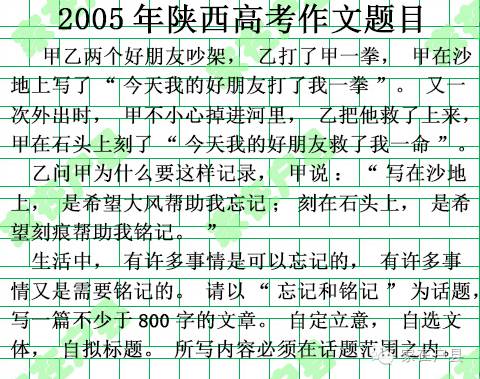 2005年陕西高考作文题目
甲乙两个好朋友吵架， 乙打了甲一拳， 甲在沙
地上写了“今天我的好朋友打了我一拳”。 又一
次外出时， 甲不小心掉进河里， 乙把他救了上来，
甲在石头上刻了“今天我的好朋友救了我一命”。
乙问甲为什么要这样记录， 甲说：“写在沙地
上， 是希望大风帮助我忘记； 刻在石头上， 是希
望刻痕帮助我铭记。 ”
生活中， 有许多事情是可以忘记的， 有许多事
情又是需要铭记的。 请以“忘记和铭记”为话题，
写一篇不少于800字的文章。 自定立意， 自选文
体， 自拟标题。 所写内容必须在话题范围之内。
家在户县